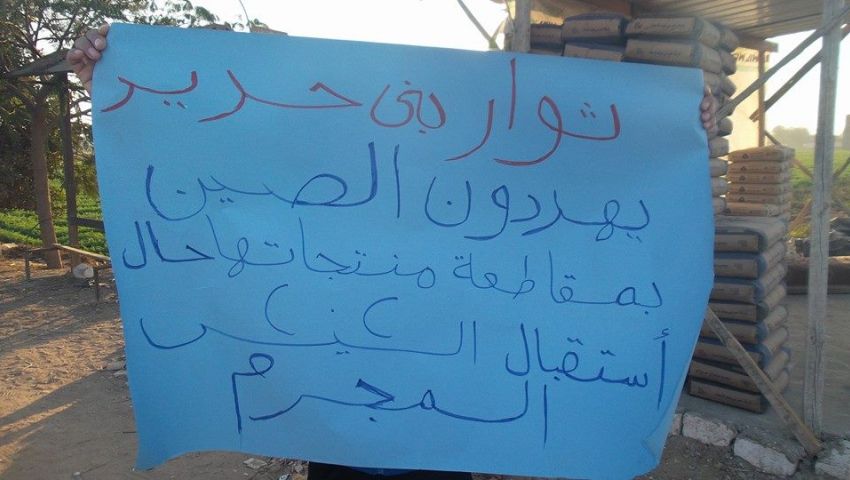 ثوار بنى حرير
يهددون الصين
بمقاطعة منتجاتها حال
أستقبال السيس
المجرم